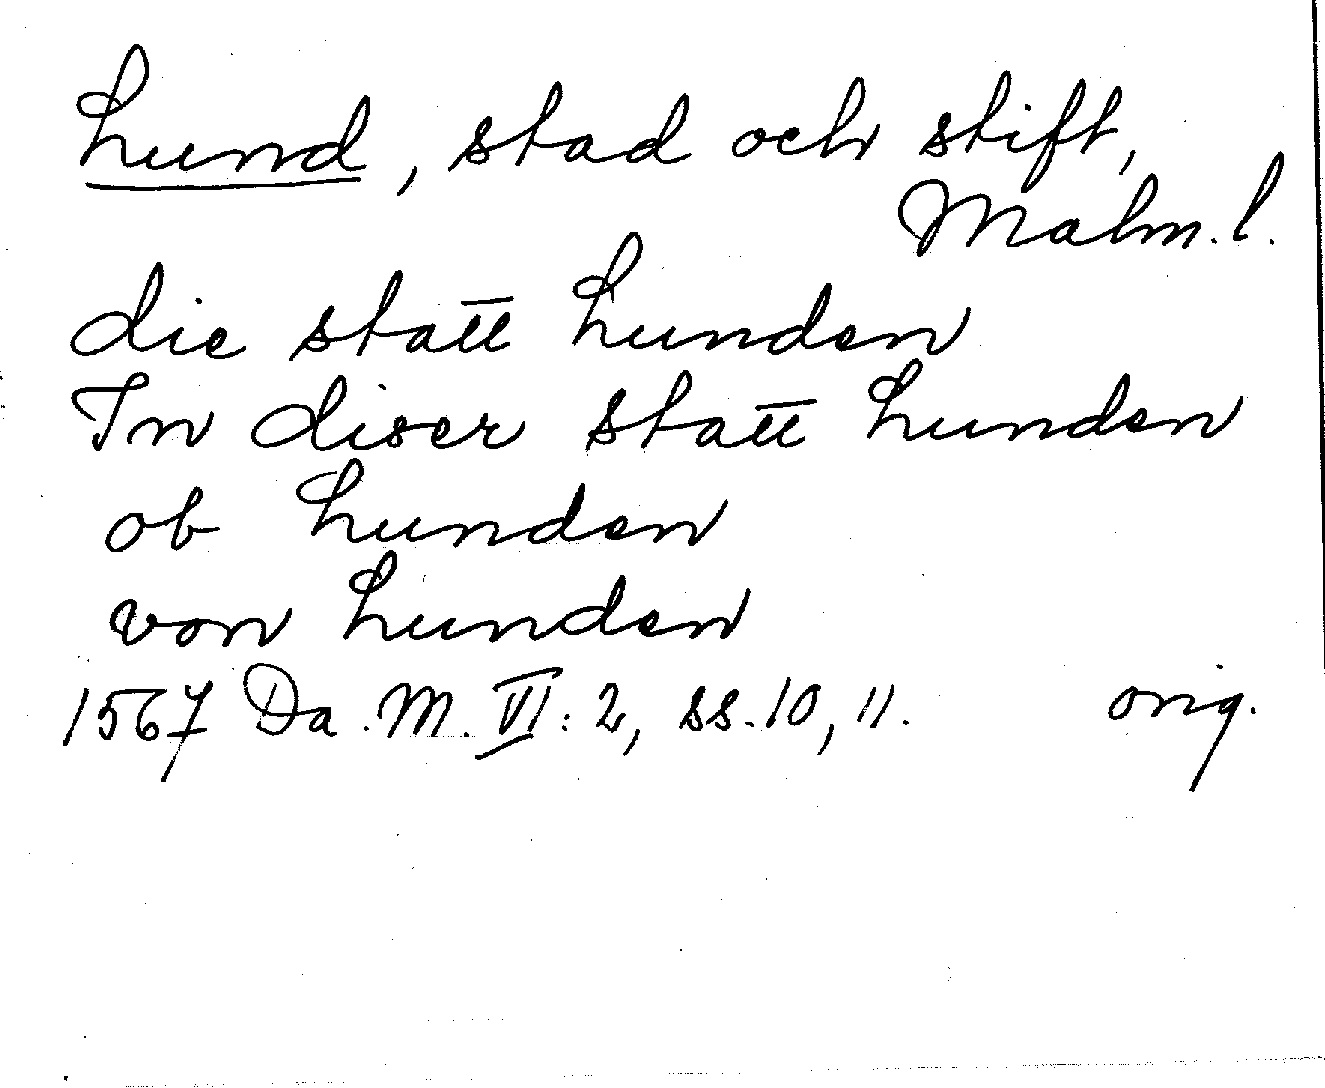 Lund, stad och stift,
Malm.l.
die statt Lunden
In diser statt Lunden
ob Lunden
von Lunden
1567 Da.M. VI:2, ss.10, 11. orig.